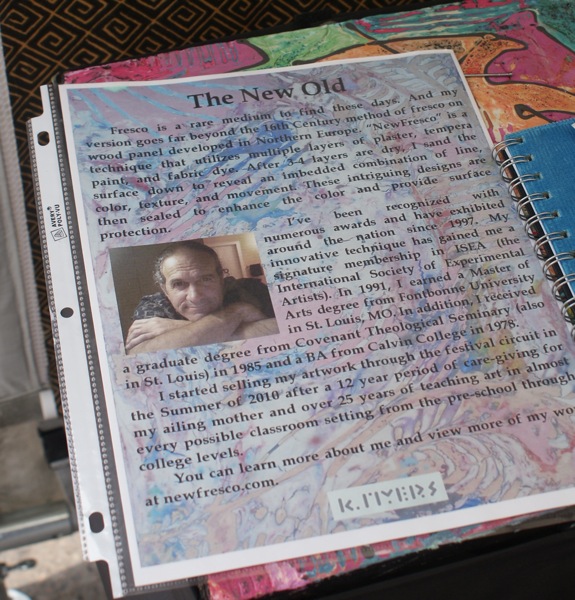 The New Old
Fresco is a rare medium to find these days. And my
version goes far beyond the 16th Century method of fresco on
wood panel developed in Northern Europe. "NewFresco" is a
technique that utilizes multiple layers of plaster, tempera
paint, and fabric dye. After 3-4 layers are dry, I sand the
surface down to reveal an imbedded combination of line,
color, texture, and movement. These intriguing designs are
then sealed to enhance the color and provide surface
protection.
I've been recognized with
numerous awards and have exhibited
around the nation since 1997. My
innovative technique has gained me a
signature membership in ISEA (the
International Society of Experimental
Artists). In 1991, I earned a Master of
Arts degree from Fontbonne University
in St. Louis, MO. In addition, I received
a graduate degree from Covenant Theological Seminary (also
in St. Louis) in 1985 and a BA from Calvin College in 1978.
I started selling my artwork through the festival circuit in
the Summer of 2010 after a 12 year period of care-giving for
my ailing mother and over 25 years of teaching art in almost
every possible classroom setting from the pre-school through
college levels.
You can learn more about me and view more of my wor
at newfresco.com.
K.MYERS
AVERY®
POLY-VU